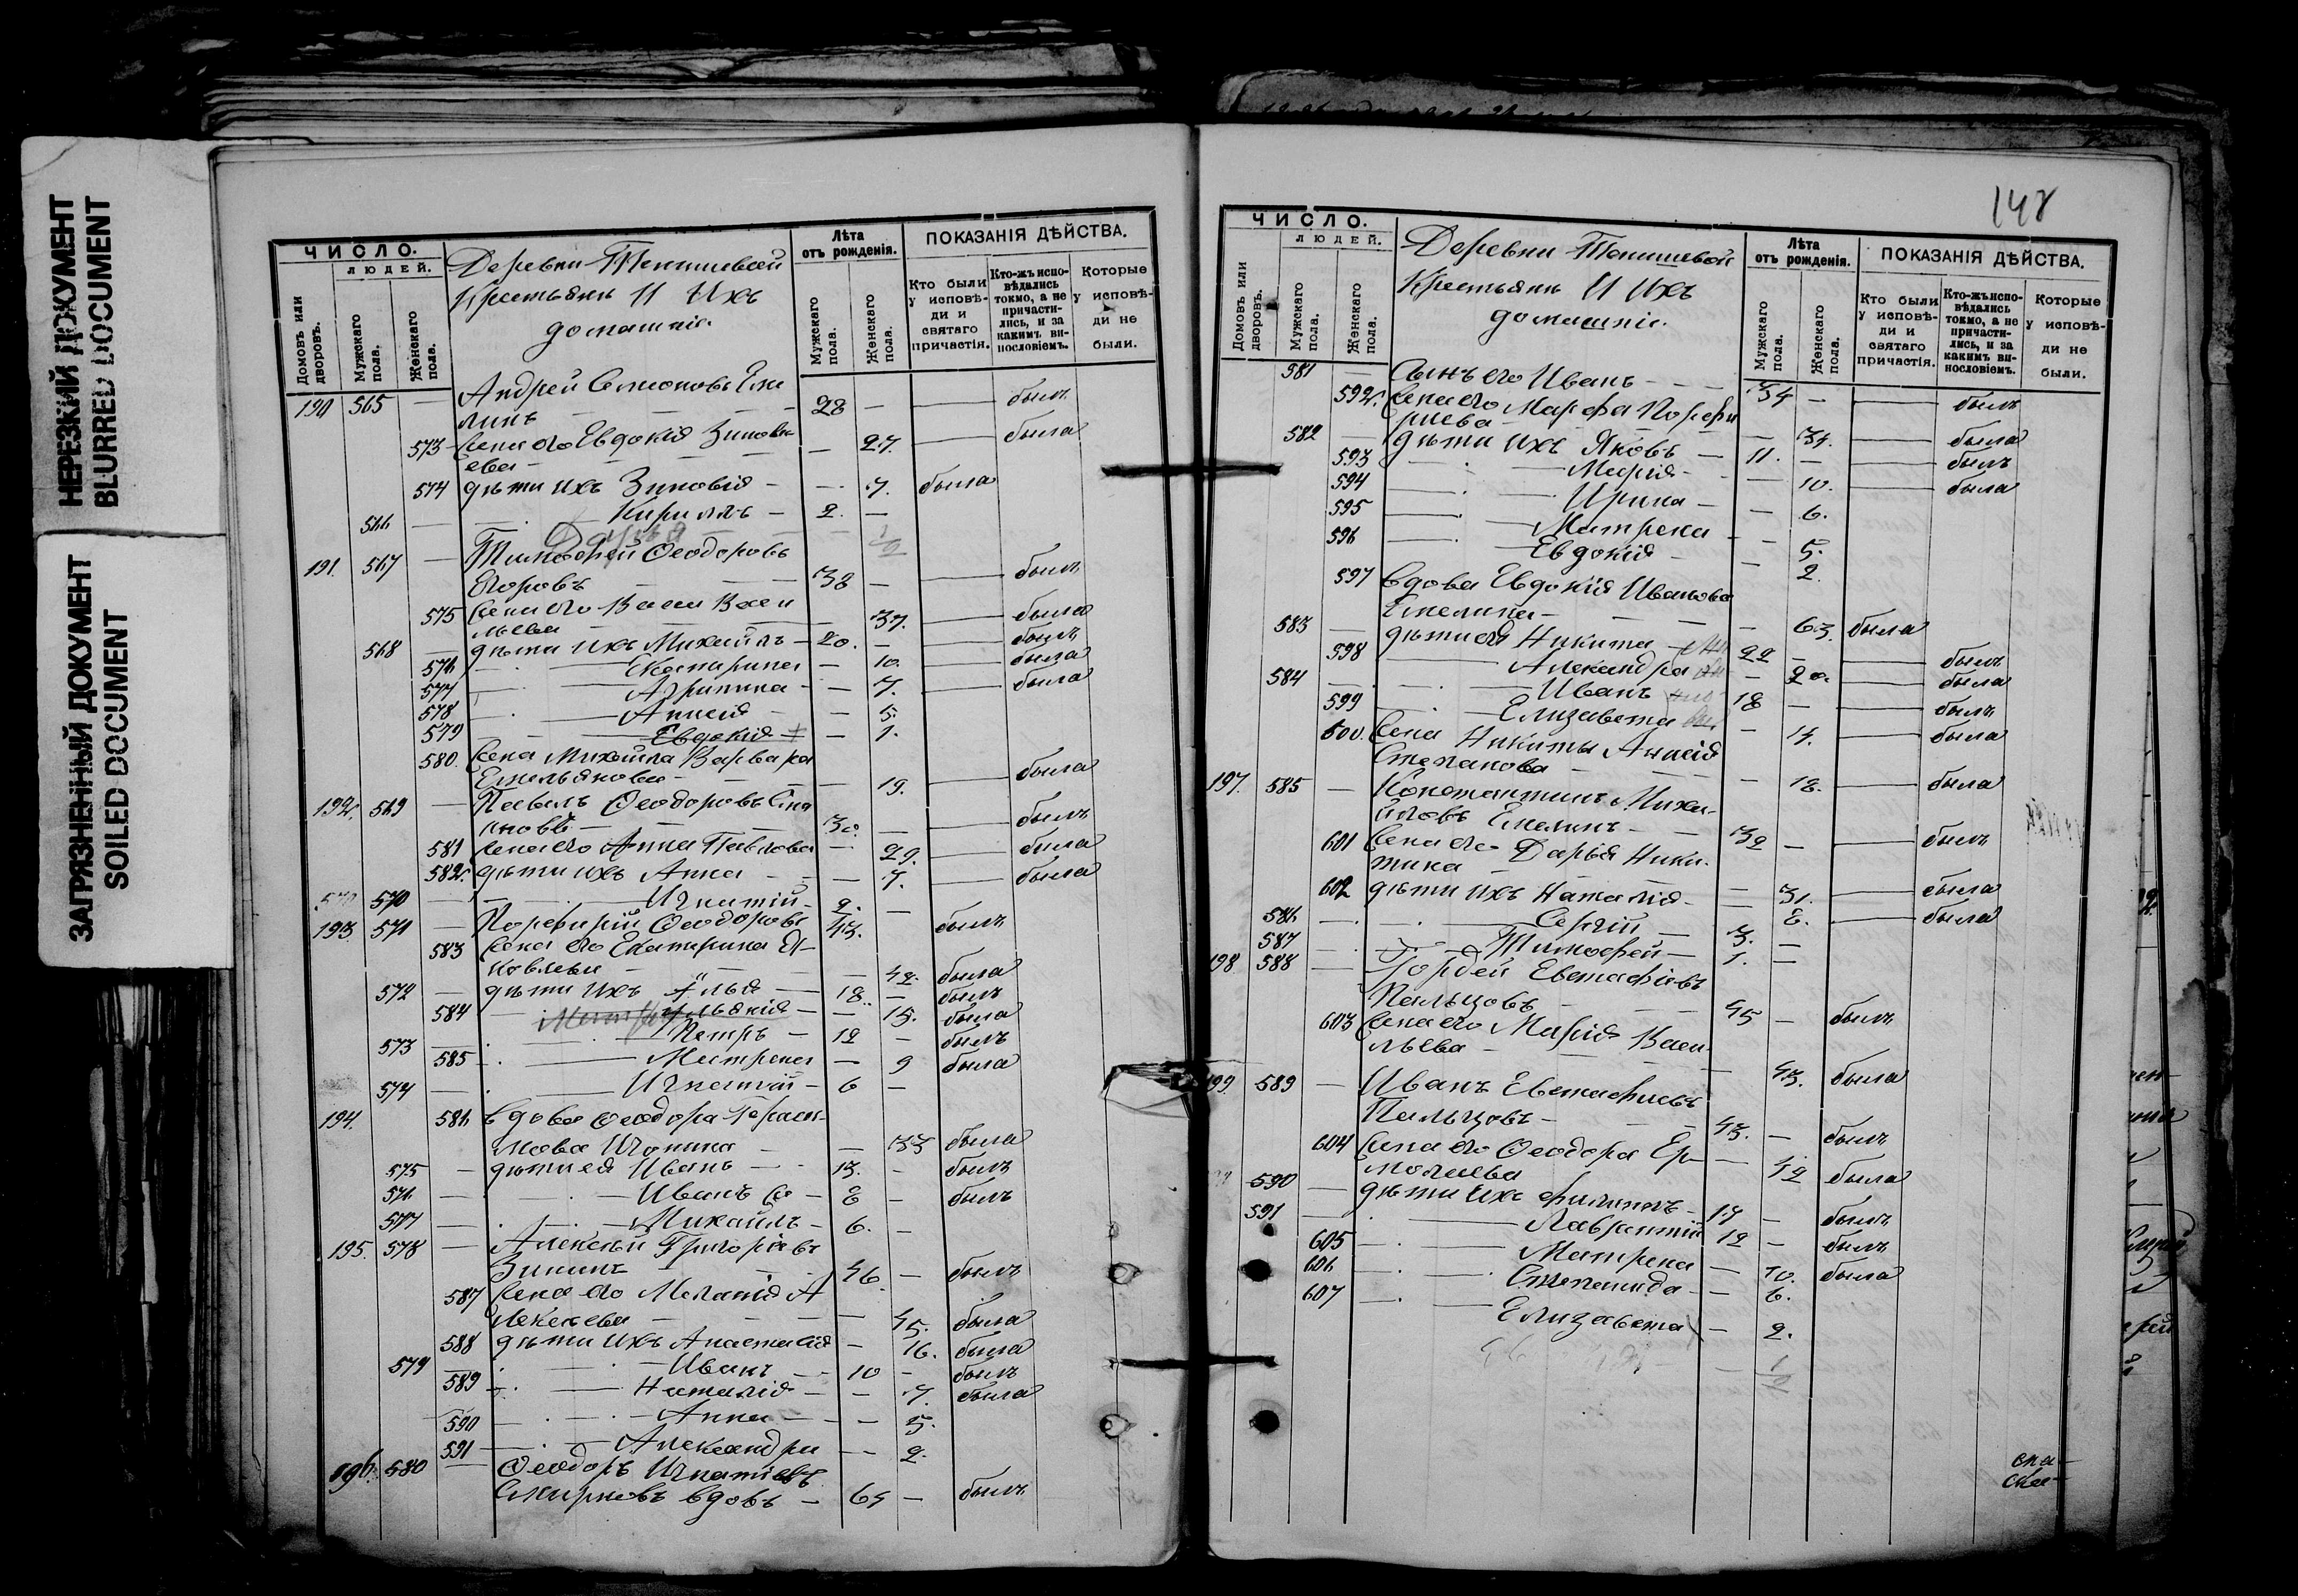 НЕРЕЗКИЙ ДОКУМЕНТ
BLURRED DOCUMENT
ЗАГРЯЗНЕННЫЙ ДОКУМЕНТ
SOILED DOCUMENT
ЧИСЛО.
ЛЮДЕЙ.
Домовъ или дворовъ.
Мужскаго пола.
Женскаго пола.
Деревни Тенишевой
Крестьяне И Ихъ
домашніе.
Лѣта отъ рожденія.
Мужскаго пола.
Женскаго пола.
ПОКАЗАНІЯ ДѢЙСТВА.
Кто были у исповѣди и святаго причастія.
Кто-жъ исповѣдались токмо, а не причастились, и за какимъ винословіемъ.
Которые у исповѣди не были.
190 565 — Андрей Симоновъ Еме
линъ — 28 — былъ
573 Жена его Евдокія Зиновь
ева — 27. была
574 дѣти ихъ Зиновія — 7. была
566 — Кириллъ — 2. —
Дарья
191. 567 — Тимофей Ѳеодоровъ
Егоровъ — 38 — былъ
575 Жена его Васса Васи
льева — 37. была
568 — дѣти ихъ Михаилъ — 20. — былъ
576 — Екатерина — 10. была
577 — Агрипина — 7. была
578 — Анисія — 5.
579 — Евдокія — 1.
580. Жена Михаила Варвара
Емельянова — 19. была
192. 569 — Павелъ Ѳеодоровъ
30. — былъ
581 Жена его Анна Павлова — 29. была
582. дѣти ихъ Анна — 7. была
570 — Игнатій — 2. —
193 571 — Порфирій Ѳеодоровъ 43. былъ
583 Жена его Екатерина Я
ковлева — 42. была
572 — дѣти ихъ Илья — 18. — былъ
584 — Ульянія — 15. была
573 — Петръ — 12 — былъ
585 — Матрена — 9 была
574 — Игнатій — 6 —
194. 586 вдова Ѳеодора Гераси
мова Игонина — 33 была
575 — дѣти ея Иванъ — 13. — былъ
576 — Иванъ — 8 — былъ
577 — Михаилъ — 6. —
195. 578 — Алексѣй Григорьевъ
Зининъ — 46. — былъ
587 Жена его Меланія А
лексѣева — 45. была
588 дѣти ихъ Анастасія — 16. была
579 — Иванъ — 10 — былъ
589 — Наталія — 7. была
590 — Анна — 5.
591 — Александра — 2.
196. 580 Ѳеодоръ Игнатіевъ
Смирновъ вдовъ — 64 — былъ
148
ЧИСЛО.
ЛЮДЕЙ.
Домовъ или дворовъ.
Мужскаго пола.
Женскаго пола.
Деревни Тенишевой
Крестьяне И Ихъ
домашніе.
Лѣта отъ рожденія.
Мужскаго пола.
Женскаго пола.
ПОКАЗАНІЯ ДѢЙСТВА.
Кто были у исповѣди и святаго причастія.
Кто-жъ исповѣдались токмо, а не причастились, и за какимъ винословіемъ.
Которые у исповѣди не были.
581 — Сынъ его Иванъ — 34 — былъ
592. Жена его Марфа Порфи
рьева — 34. была
582 — дѣти ихъ Яковъ — 11. — былъ
593 — Марія — 10. была
594 — Ирина — 6.
595 — Матрена — 5.
596 — Евдокія — 2.
597 вдова Евдокія Иванова
Емелина — 63. была
583 — дѣти ея Никита 22 — былъ
598 — Александра — 20. была
584 — Иванъ 18 — былъ
599 — Елизавета — 14. была
600. Жена Никиты Анисія
Степанова — 18. была
197. 585 — Константинъ Миха
йловъ Емелинъ — 32 — былъ
601 Жена его Дарья Ники
тина — 31. была
602 дѣти ихъ Наталія — 8. была
586 — Сергій — 3. —
587 — Тимофей — 1. —
198 588 — Гордей Евстафіевъ
Пальцовъ — 45 — былъ
603 Жена его Марія Васи
льева — 43. была
199. 589 — Иванъ Евстафьевъ
Пальцовъ — 43. — былъ
604 Жена его Ѳеодора Ер
молаева — 42 была
590 — дѣти ихъ Филиппъ — 17 — былъ
591 — Лаврентій 12 — былъ
605 — Матрена — 10. была
606 — Степанида — 6.
607 — Елизавета — 2.